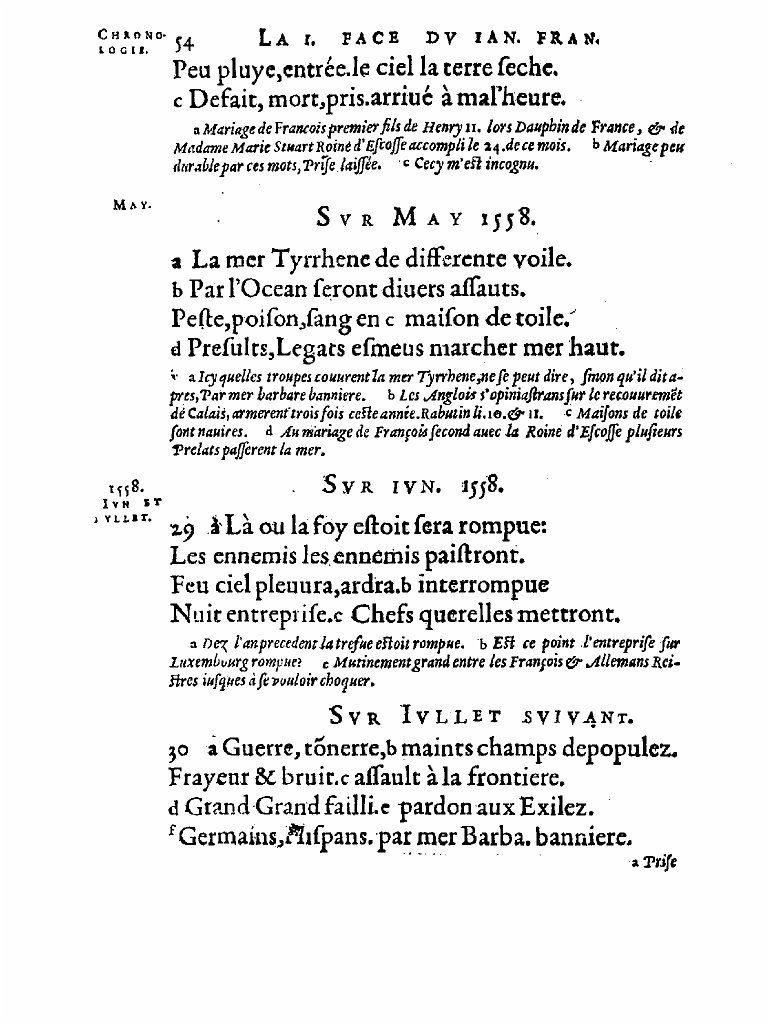 CHRONO-
LOGIE.
54 LA I. FACE DV IAN. FRAN.
Peu pluye,entrée.le ciel la terre ſeche.
c Defait, mort,pris.arriué à mal'heure.
a Mariage de Francois premier fils de Henry II. lors Dauphin de France, & de
Madame Marie Stuart Roine d'Eſcoſſe accompli le 24.de ce mois. b Mariage peu
durable par ces mots, Priſe laiſſée. c Cecy m'eſt incognu.
MAY.
SVR MAY 1558.
a La mer Tyrrhene de differente voile.
b Par l'Ocean ſeront diuers aſſauts.
Peſte,poiſon,ſang en c maiſon de toile.
d Preſults,Legats eſmeus marcher mer haut.
a Icy quelles troupes couurent la mer Tyrrhene,ne ſe peut dire, ſinon qu'il dit a-
pres,Par mer barbare banniere. b Les Anglois s'opiniaſtrans ſur le recouuremẽt
de Calais, armerent trois fois ceſte année.Rabutin li.10.& 11. c Maiſons de toile
ſont nauires. d Au mariage de François ſecond auec la Roine d'Eſcoſſe pluſieurs
Prelats paſſerent la mer.
1558.
IVN ET
IVLLET.
SVR IVN. 1558.
29 a Là ou la foy eſtoit ſera rompue:
Les ennemis les ennemis paiſtront.
Feu ciel pleuura,ardra.b interrompue
Nuit entrepriſe.c Chefs querelles mettront.
a Dez l'an precedent la trefue eſtoit rompue. b Eſt ce point l'entrepriſe ſur
Luxembourg rompue? c Mutinement grand entre les François & Allemans Rei-
ſtres iuſques à ſe vouloir choquer.
SVR IVLLET SVIVANT.
30 a Guerre, tõnerre,b maints champs depopulez.
Frayeur & bruit.c aſſault à la frontiere.
d Grand Grand failli.e pardon aux Exilez.
f Germains,Hiſpans. par mer Barba. banniere.
a Priſe